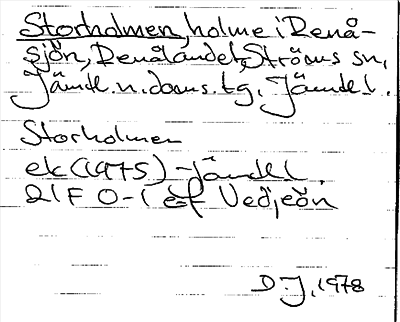 Storholmen, holme i Renå-
sjön, Renålandet, Ströms sn,
Jämtl. n. doms. tg, Jämtl.
Storholmen
ek (1975) - Jämtl.
21F 0-1 ef Vedjeön
D. J, 1978